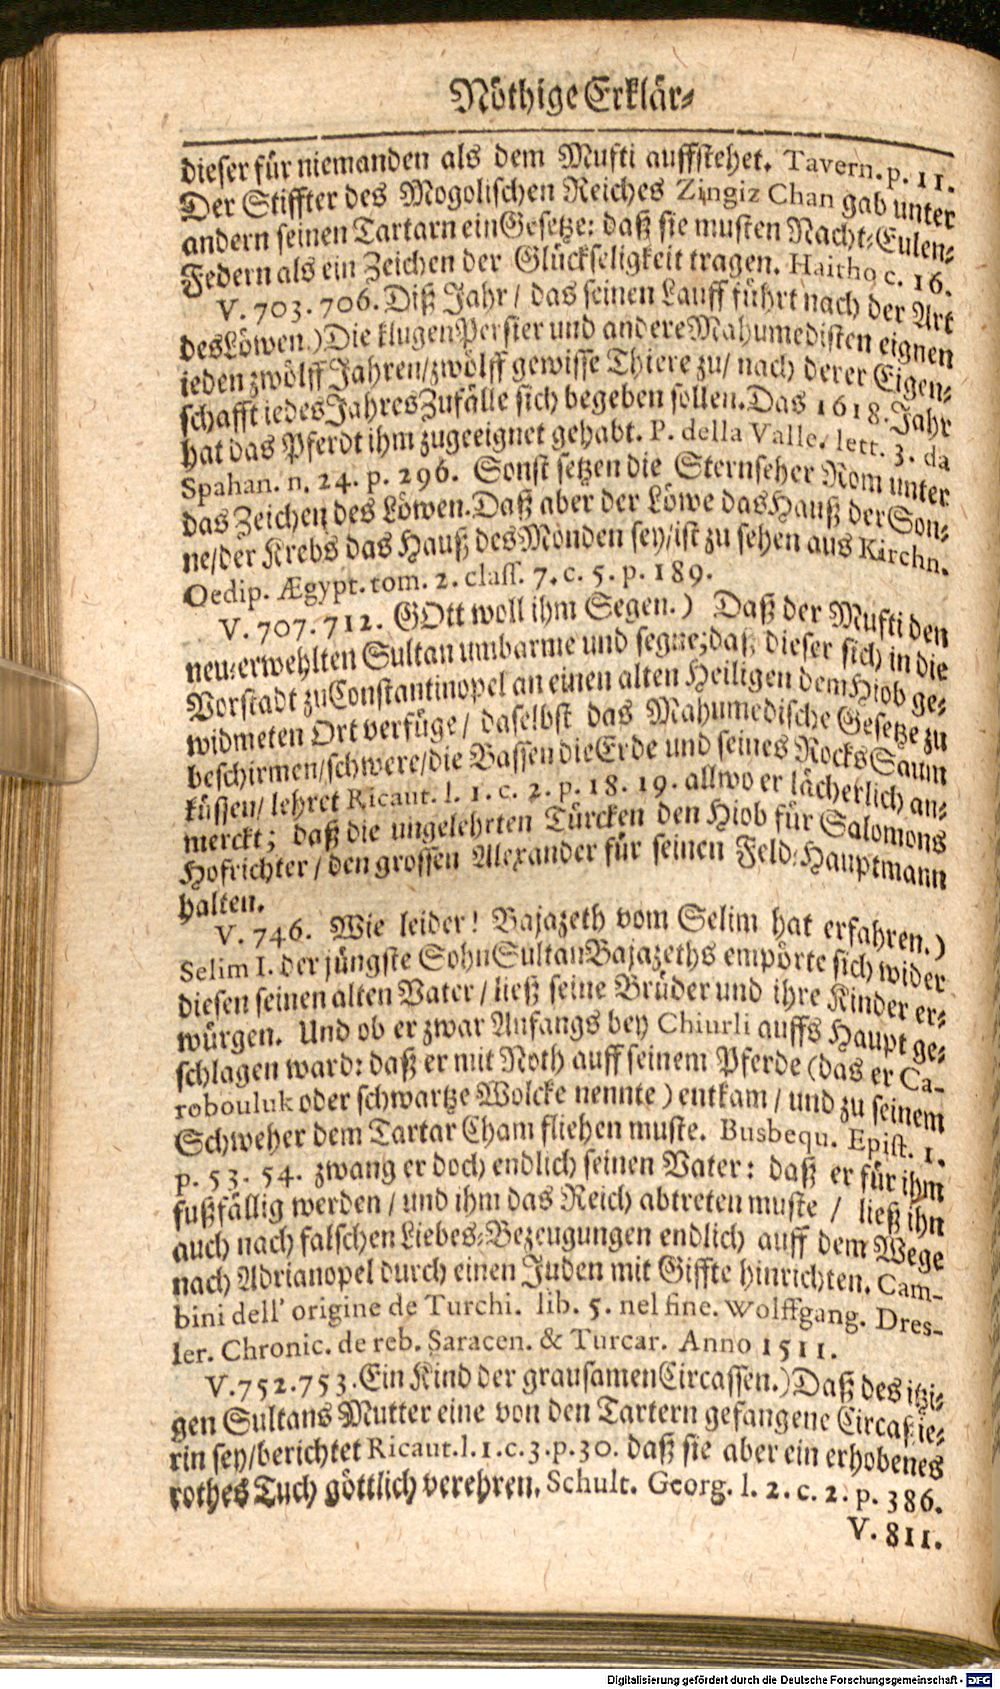 Nöthige Erklär⸗
dieser für niemanden als dem Mufti auffstehet. Tavern. p. 11.
Der Stiffter des Mogolischen Reiches Zingiz Chan gab unter
andern seinen Tartarn ein Gesetze: daß sie musten Nacht⸗Eulen⸗
Federn als ein Zeichen der Glückseligkeit tragen. Haitho c. 16.
V. 703. 706. Diß Jahr / das seinen Lauff führt nach der Art
des Löwen.) Die klugen Persier und andere Mahumedisten eignen
ieden zwölff Jahren/ zwölff gewisse Thiere zu/ nach derer Eigen⸗
schafft iedes Jahres Zufälle sich begeben sollen. Das 1618. Jahr
hat das Pferdt ihm zugeeignet gehabt. P. della Valle. lett. 3. da
Spahan. n. 24. p. 296. Sonst setzen die Sternseher Rom unter
das Zeichen des Löwen. Daß aber der Löwe das Hauß der Son⸗
ne/ der Krebs das Hauß des Monden sey/ ist zu sehen aus Kirchn.
Oedip. Ægypt. tom. 2. class. 7. c. 5. p. 189.
V. 707. 712. GOtt woll ihm Segen.) Daß der Mufti den
neu⸗erwehlten Sultan umbarme und segne; daß dieser sich in die
Vorstadt zu Constantinopel an einen alten Heiligen dem Hiob ge⸗
widmeten Ort verfüge / daselbst das Mahumedische Gesetze zu
beschirmen/ schwere/ die Bassen die Erde und seines Rocks Saum
küssen/ lehret Ricaut. l. 1. c. 2. p. 18. 19. allwo er lächerlich an⸗
merckt; daß die ungelehrten Türcken den Hiob für Salomons
Hofrichter / den grossen Alexander für seinen Feld⸗Hauptmann
halten.
V. 746. Wie leider! Bajazeth vom Selim hat erfahren.)
Selim I. der jüngste Sohn Sultan Bajazeths empörte sich wider
diesen seinen alten Vater / ließ seine Brüder und ihre Kinder er⸗
würgen. Und ob er zwar Anfangs bey Chiurli auffs Haupt ge⸗
schlagen ward: daß er mit Noth auff seinem Pferde (das er Ca-
robouluk oder schwartze Wolcke nennte) entkam / und zu seinem
Schweher dem Tartar Cham fliehen muste. Busbequ. Epist. 1.
p. 53. 54. zwang er doch endlich seinen Vater: daß er für ihm
fußfällig werden / und ihm das Reich abtreten muste / ließ ihn
auch nach falschen Liebes⸗Bezeugungen endlich auff dem Wege
nach Adrianopel durch einen Juden mit Giffte hinrichten. Cam-
bini dell' origine de Turchi. lib. 5. nel fine. Wolffgang. Dres-
ler. Chronic. de reb. Saracen. & Turcar. Anno 1511.
V. 752. 753. Ein Kind der grausamen Circassen.) Daß des itzi⸗
gen Sultans Mutter eine von den Tartern gefangene Circaßie⸗
rin sey/ berichtet Ricaut. l. 1. c. 3. p. 30. daß sie aber ein erhobenes
rothes Tuch göttlich verehren. Schult. Georg. l. 2. c. 2. p. 386.
V. 811.
Digitalisierung gefördert durch die Deutsche Forschungsgemeinschaft - DFG